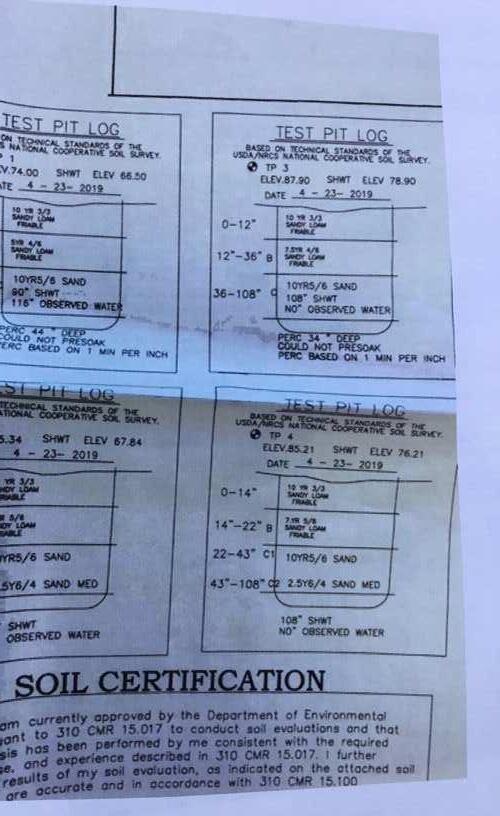 TEST PIT LOG
ON TECHNICAL STANDARDS OF THE
S NATIONAL COOPERATIVE SOIL SURVEY.
P 1
EV.74.00 SHWT ELEV 66.50
ATE 4 - 23- 2019
10 YR 3/3
SANDY LOAM
FRIABLE
5YR 4/6
SANDY LOAM
FRIABLE
10YR5/6 SAND
90" SHWT
116" OBSERVED WATER
PERC 44 " DEEP
COULD NOT PRESOAK
PERC BASED ON 1 MIN PER INCH
TEST PIT LOG
BASED ON TECHNICAL STANDARDS OF THE
USDA/NRCS NATIONAL COOPERATIVE SOIL SURVEY.
TP 3
ELEV.87.90 SHWT ELEV 78.90
DATE 4 - 23- 2019
0-12"
10 YR 3/3
SANDY LOAM
FRIABLE
12"-36" B
7.5YR 4/6
SANDY LOAM
FRIABLE
36-108" C
10YR5/6 SAND
108" SHWT
NO" OBSERVED WATER
PERC 34 " DEEP
COULD NOT PRESOAK
PERC BASED ON 1 MIN PER INCH
ST PIT LOG
TECHNICAL STANDARDS OF THE
ATIONAL COOPERATIVE SOIL SURVEY.
5.34 SHWT ELEV 67.84
4 - 23- 2019
YR 3/3
NDY LOAM
FRIABLE
R 5/6
NDY LOAM
FRIABLE
YR5/6 SAND
.5Y6/4 SAND MED
" SHWT
OBSERVED WATER
TEST PIT LOG
BASED ON TECHNICAL STANDARDS OF THE
USDA/NRCS NATIONAL COOPERATIVE SOIL SURVEY.
TP 4
ELEV.85.21 SHWT ELEV 76.21
DATE 4 - 23- 2019
0-14"
10 YR 3/3
SANDY LOAM
FRIABLE
14"-22" B
7.YR 5/6
SANDY LOAM
FRIABLE
22-43" C1 10YR5/6 SAND
43"-108" C2 2.5Y6/4 SAND MED
108" SHWT
NO" OBSERVED WATER
SOIL CERTIFICATION
am currently approved by the Department of Environmental
uant to 310 CMR 15.017 to conduct soil evaluations and that
sis has been performed by me consistent with the required
se, and experience described in 310 CMR 15.017. I further
results of my soil evaluation, as indicated on the attached soil
are accurate and in accordance with 310 CMR 15.100